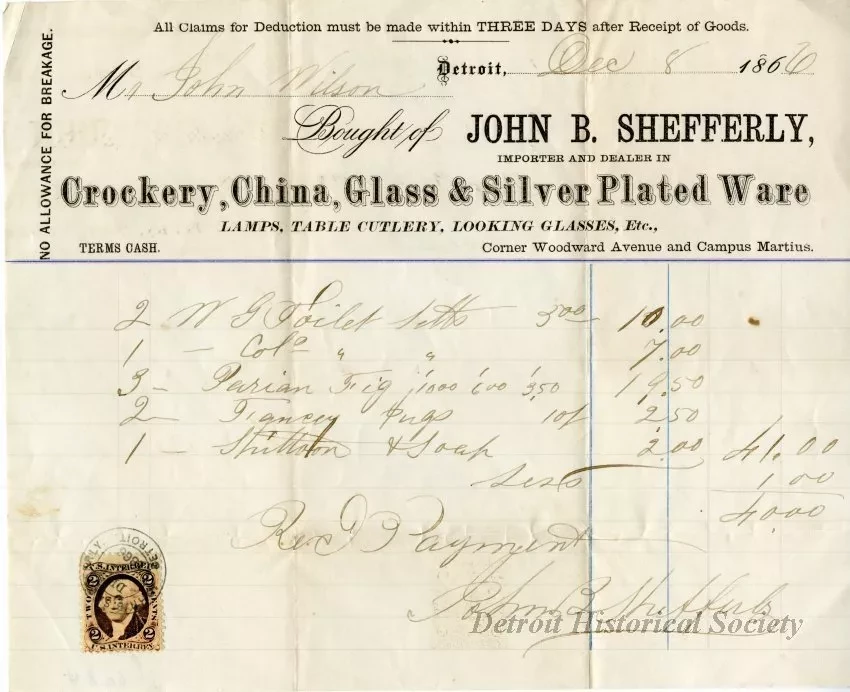 All Claims for Deduction must be made within THREE DAYS after Receipt of Goods.
NO ALLOWANCE FOR BREAKAGE.
Detroit, Dec 8 1866
Mr John Wilson
Bought of JOHN B. SHEFFERLY,
IMPORTER AND DEALER IN
Crockery, China, Glass & Silver Plated Ware
LAMPS, TABLE CUTLERY, LOOKING GLASSES, Etc.,
TERMS CASH. Corner Woodward Avenue and Campus Martius.
2 W G Toilet Setts 5 00 10.00
1 — Cold " " 7.00
3 — Parian Fig 1/1000 1/600 1/3.50 19.50
2 — Jugs 10/ 2.50
1 — & Soap 2.00 41.00
Less 1 00
40 00
Rec'd Payment
John B Shefferly
DETROIT
U.S. INTER. REV.
2 2
TWO CENTS
2 2
U.S. INTER. REV.
Detroit Historical Society